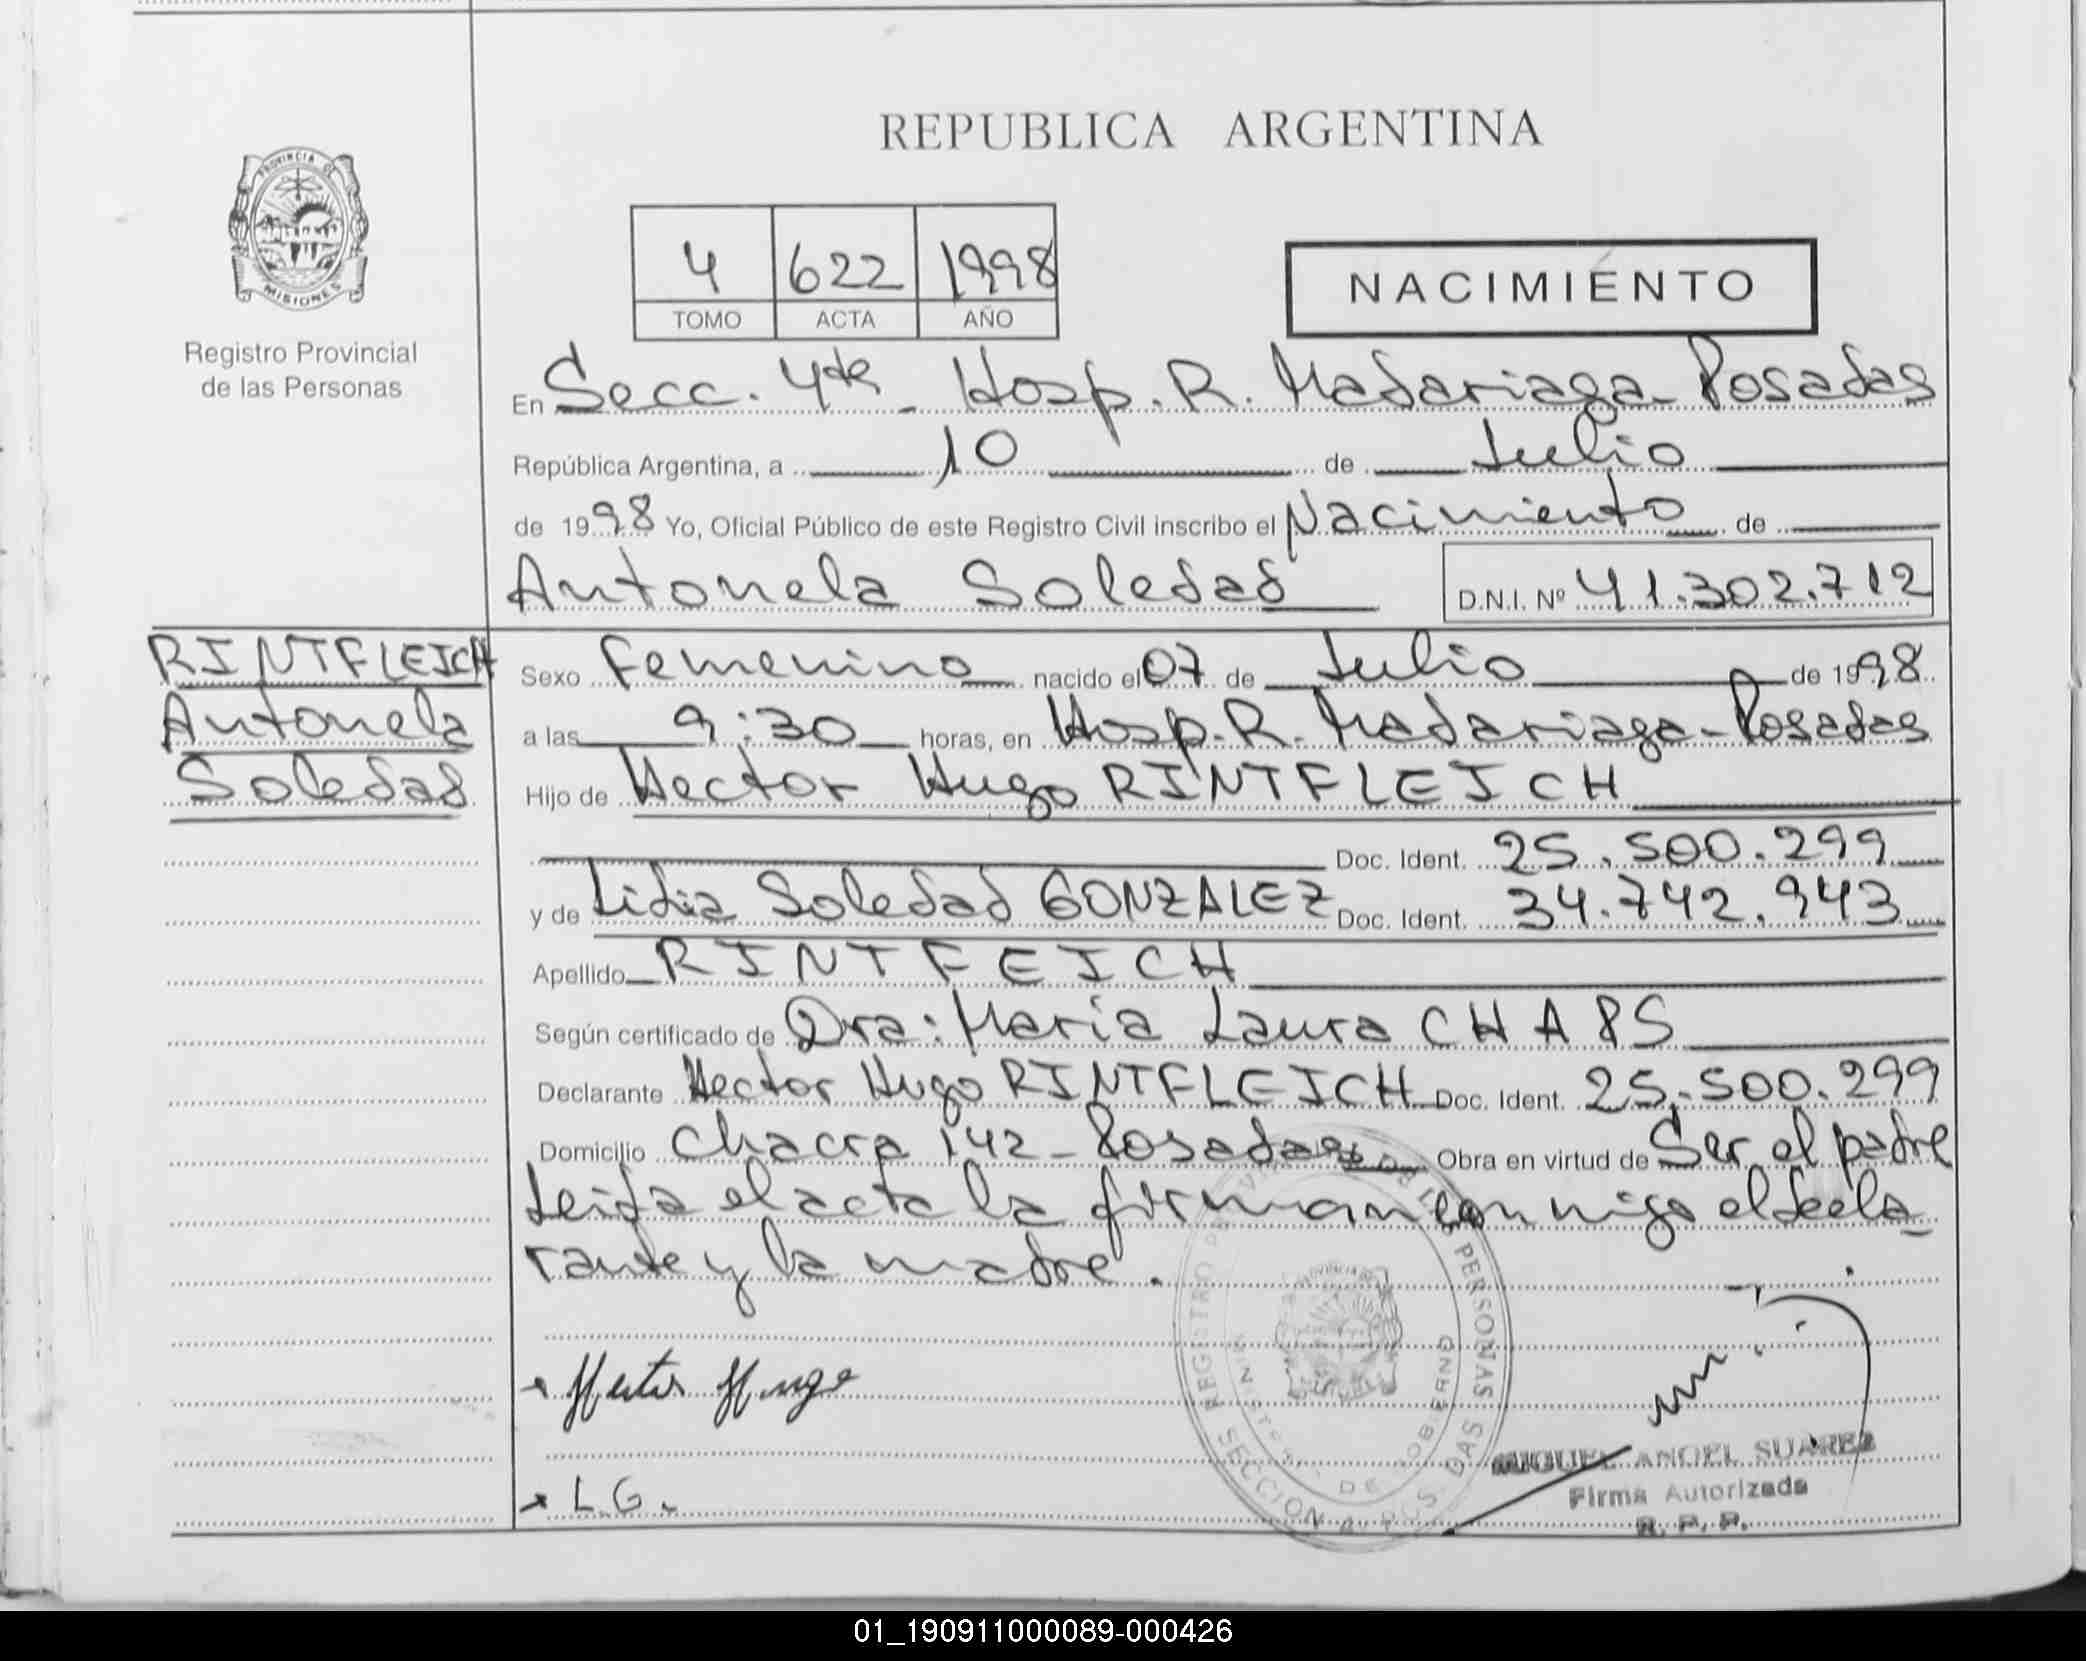 REPUBLICA ARGENTINA
PROVINCIA DE
MISIONES
Registro Provincial
de las Personas
4 622 1998
TOMO ACTA AÑO
NACIMIENTO
En Secc. 4ta - Hosp. R. Madariaga - Posadas
República Argentina, a 10 de Julio
de 1998 Yo, Oficial Público de este Registro Civil inscribo el Nacimiento de
Antonela Soledad D.N.I. Nº 41.302.712
RINTFLEICH
Antonela
Soledad
Sexo Femenino nacido el 07 de Julio de 1998
a las 9:30 horas, en Hosp. R. Madariaga - Posadas
Hijo de Hector Hugo RINTFLEICH
Doc. Ident. 25.500.299
y de Lidia Soledad GONZALEZ Doc. Ident. 34.742.943
Apellido RINTFEICH
Según certificado de Dra: Maria Laura
Declarante Hector Hugo RINTFLEICH Doc. Ident. 25.500.299
Domicilio Chacra 142 - Posadas Obra en virtud de Ser el padre
Leida el acta la firman conmigo el decla
rante y la madre.
Hector Hugo
L.G.
MIGUEL ANGEL SUAREZ
Firma Autorizada
R. P. P.
01_190911000089-000426